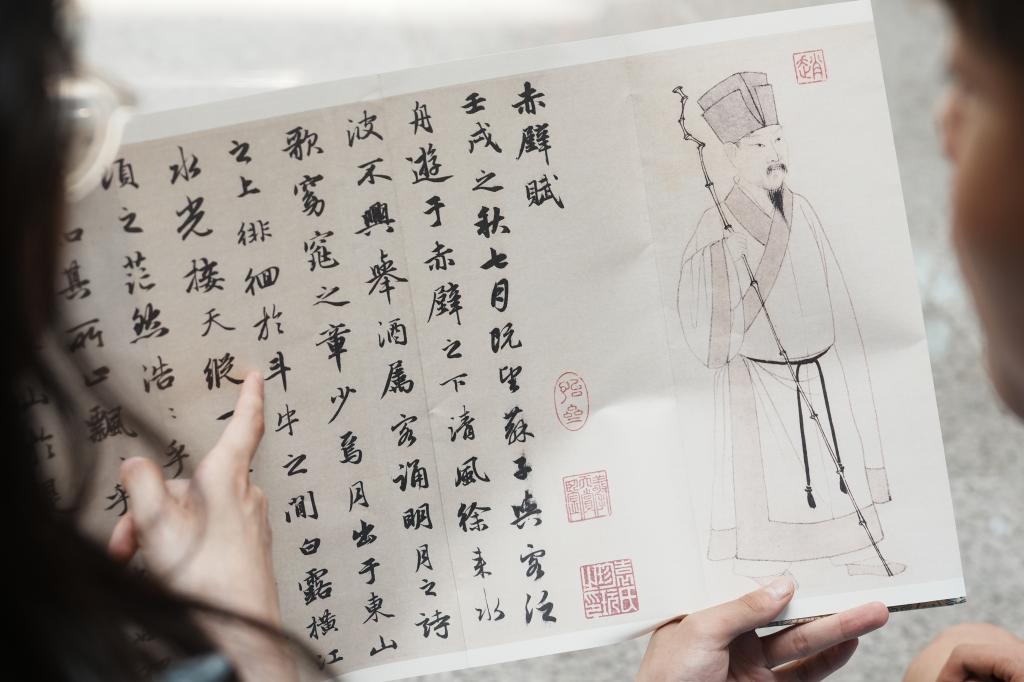 趙
赤壁賦
壬戌之秋七月既望蘇子與客泛
舟遊于赤壁之下清風徐来水
波不興舉酒属客誦明月之詩
歌窈窕之章少焉月出于東山
之上徘徊於斗牛之間白露横江
水光接天縱一
頃之茫然浩〻乎
其所止飄〻乎